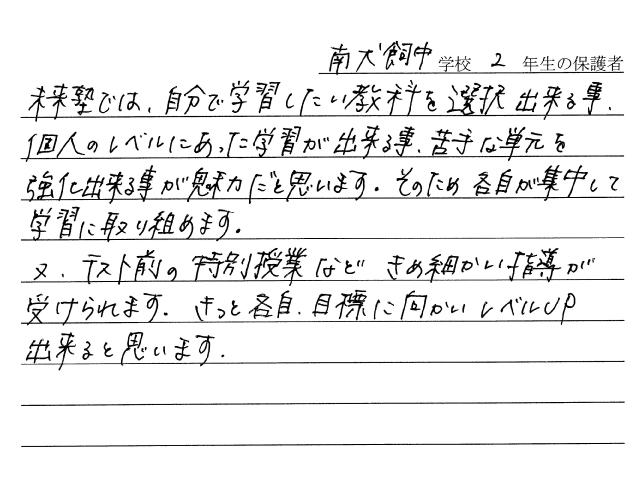 南犬飼中学校 2 年生の保護者
未来塾では、自分で学習したい教科を選択出来る事、
個人のレベルにあった学習が出来る事、苦手な単元を
強化出来る事が魅力だと思います。そのため各自が集中して
学習に取り組めます。
又、テスト前の特別授業など きめ細かい指導が
受けられます。きっと各自、目標に向かいレベルUP
出来ると思います。